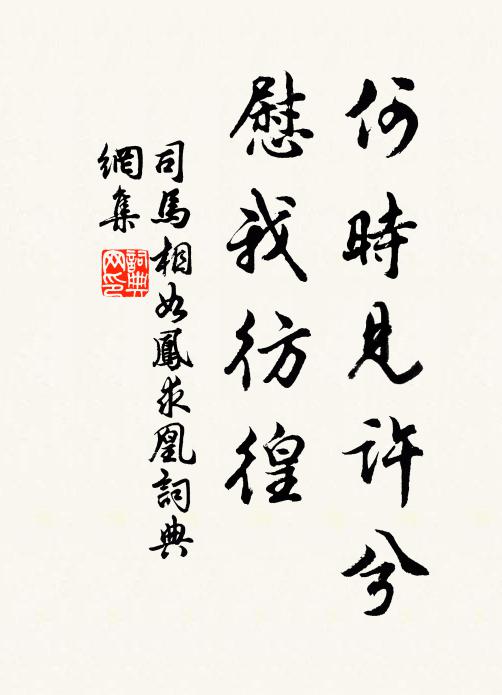 何時見許兮
慰我彷徨
司馬相如鳳求凰詞典
網集
詞典
网印